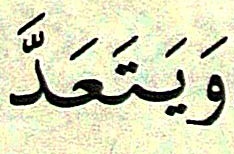 وَيَتَعَدَّ